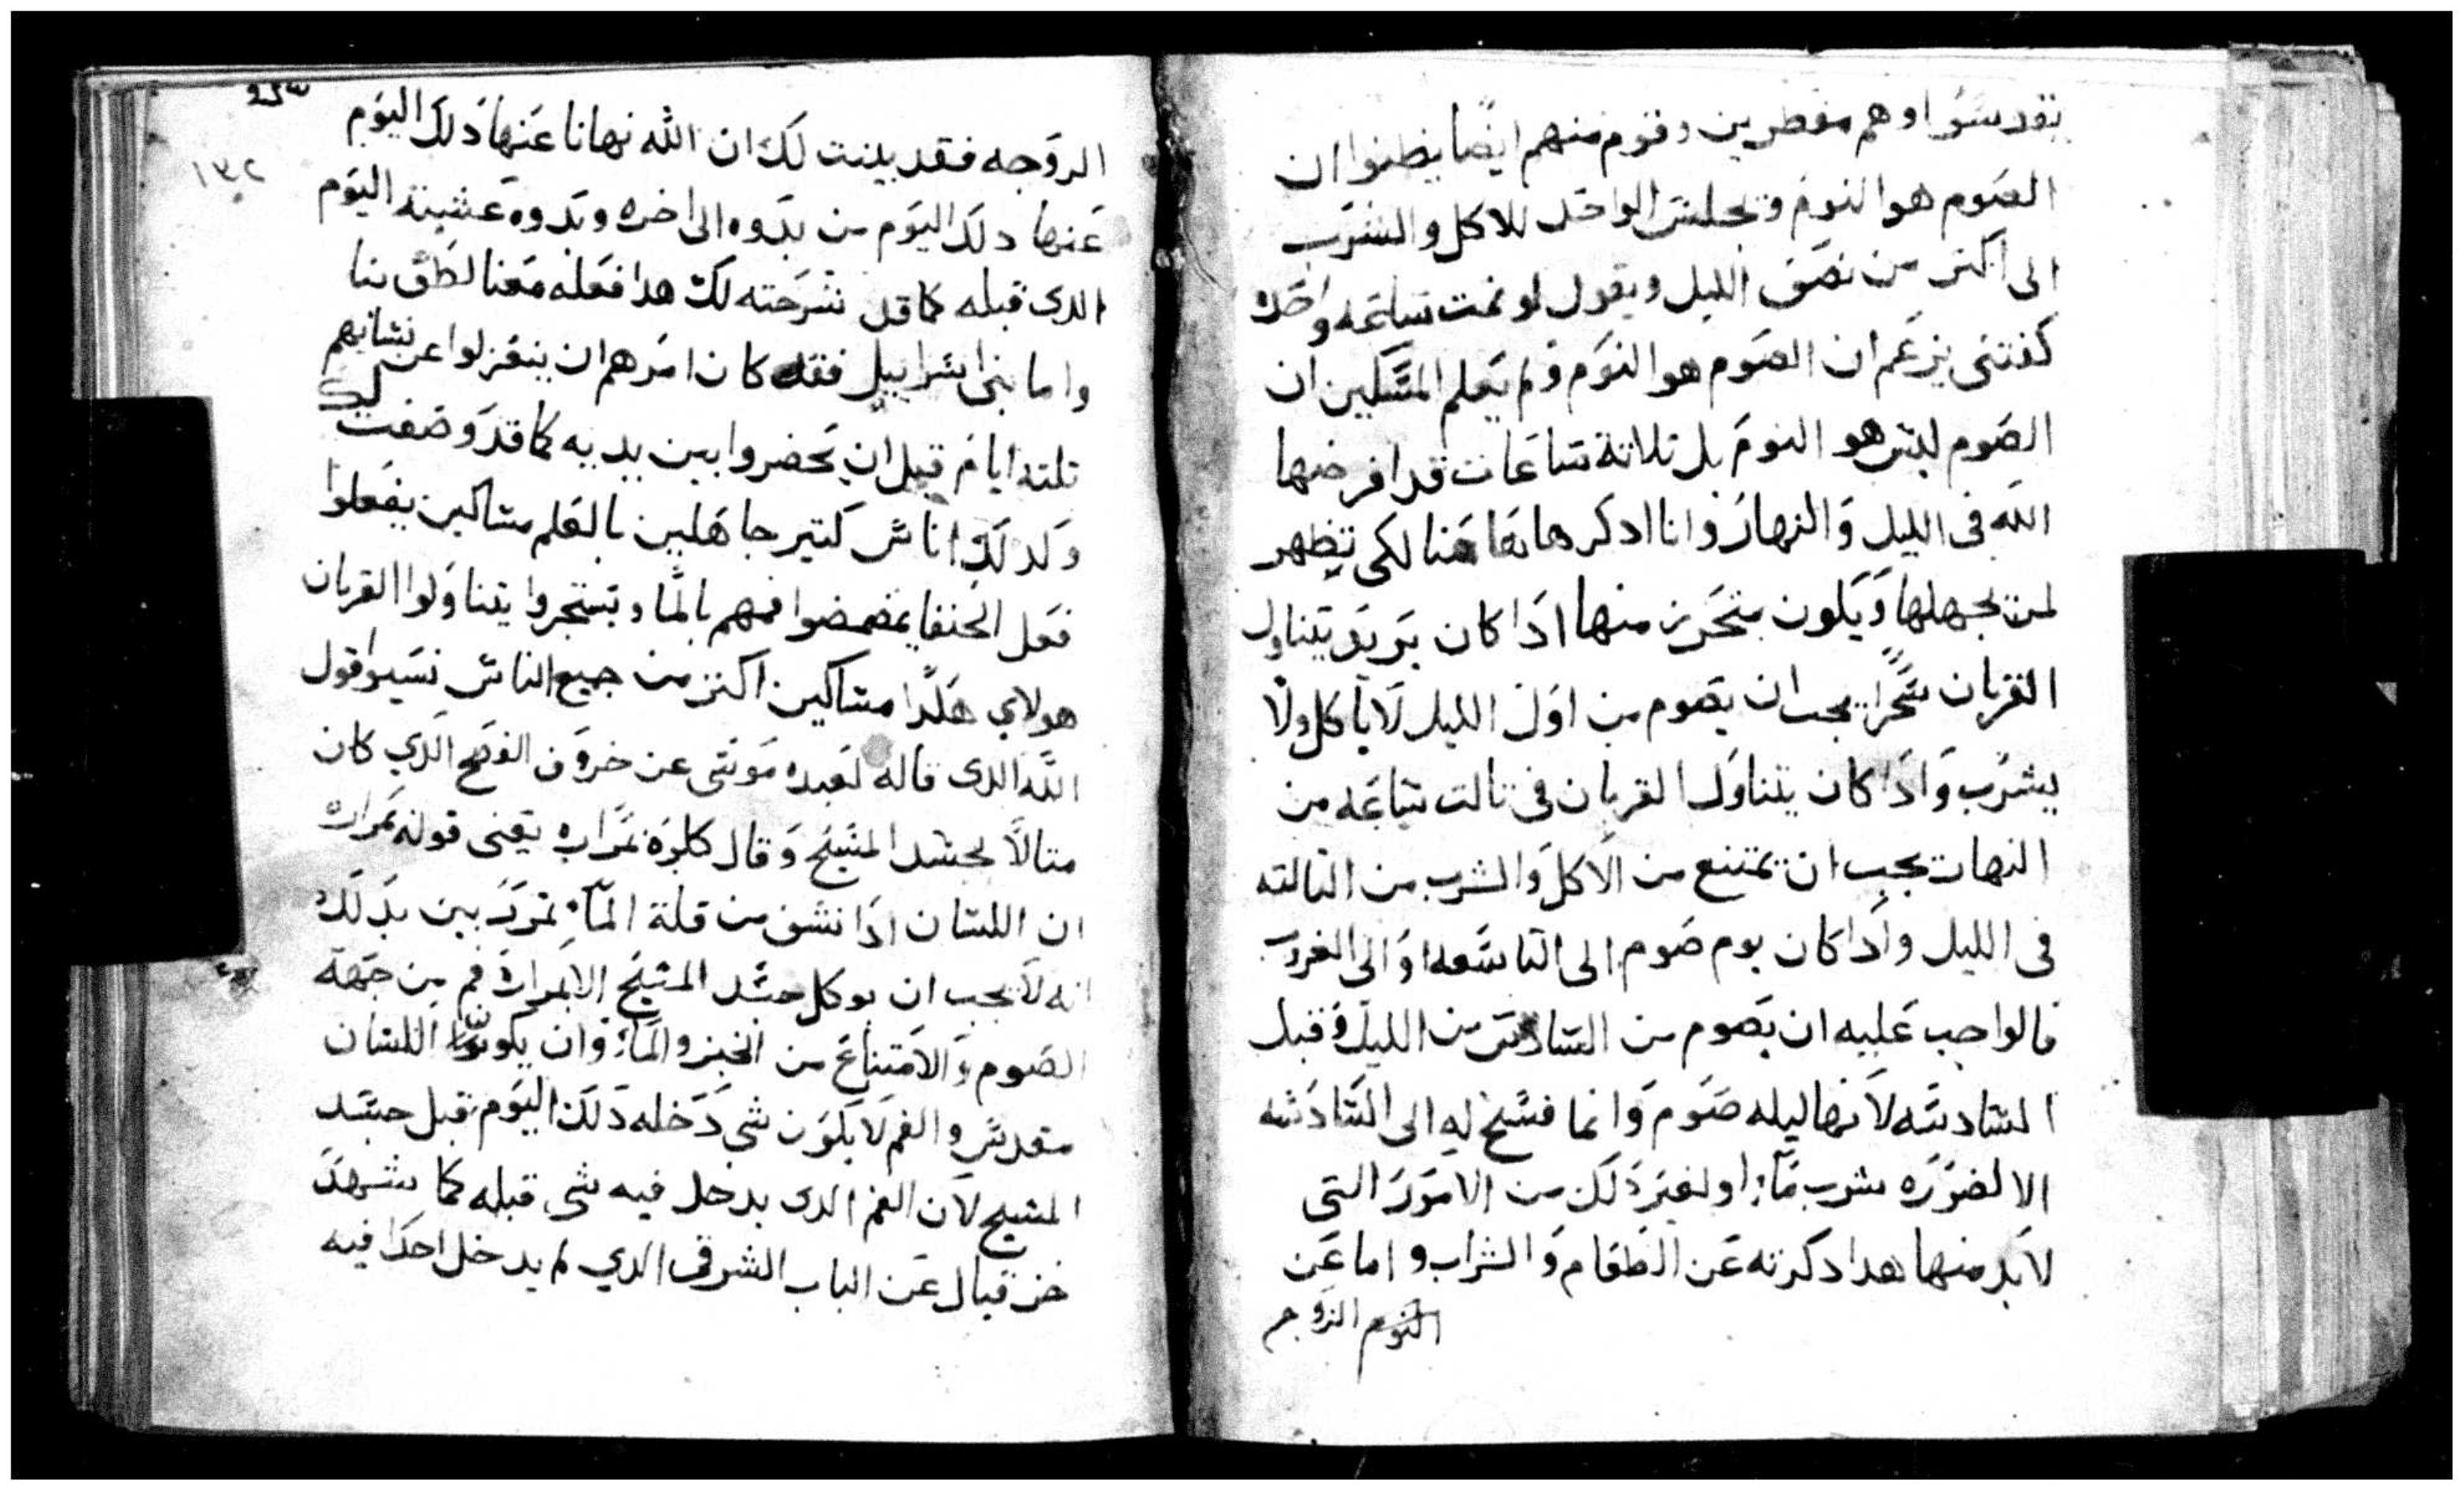 يتقدسوا وهم مفطرين وقوم منهم ايضا يظنوا ان
الصوم هو النوم ويجلس الواحد للاكل والشرب
الى اكتر من نصف الليل ويقول لو نمت ساعه واحده
كفتنى يزعم ان الصوم هو النوم ولم يعلم المسكين ان
الصوم ليس هو النوم بل تلاتة ساعات قد افرضها
الله فى الليل والنهار وانا ادكرها هاهنا لكى تظهر
لمن يجهلها ويكون متحرز منها ادا كان يريد يتناول
القربان سحرا يجب ان يصوم من اول الليل لا ياكل ولا
يشرب وادا كان يتناول القربان فى تالت ساعه من
النهار يجب ان يمتنع من الاكل والشرب من التالته
فى الليل وادا كان يوم صوم الى التاسعه او الى الغروب
فالواجب عليه ان يصوم من السادس من الليل وقبل
السادسه لانها ليله صوم وانما فسح له الى السادسه
الا لضروره شرب ماء او لغير دلك من الامور التى
لابد منها هدا دكرته عن الطعام والشراب واما عن
النوم الزوجه
١٣٢
الزوجه فقد بينت لك ان الله نهانا عنها دلك اليوم
عنها دلك اليوم من بدوه الى اخره وبدوه عشية اليوم
الدى قبله كما قد شرحته لك هدا فعله معنا لطف بنا
واما بنى اسراييل فقد كان امرهم ان ينعزلوا عن نسايهم
تلتة ايام قبل ان يحضروا بين يديه كما قد وصفت لك
وكدلك اناس كتير جاهلين بالعلم مساكين يفعلوا
فعل الحنفا يمضمضوا فمهم بالما ويستجروا يتناولوا القربان
هولاي هكدا مساكين اكتر من جميع الناس نسيوا قول
الله الدى قاله لعبده موسى عن خروف الفصح الدي كان
متالا لجسد المسيح وقال كلوه بمراره يعنى قوله بمراره
ان اللسان ادا نشف من قلة الماء تمرر بين بدلك
انه لا يجب ان يوكل جسد المسيح الا بمرارة فم من جهة
الصوم والامتناع من الخبز والماء وان يكون اللسان
مقدس والفم لا يكون شى دخله دلك اليوم قبل جسد
المسيح لان الفم الدى يدخل فيه شى قبله كما شهد
حزقيال عن الباب الشرقى الدي لم يدخل احدا فيه